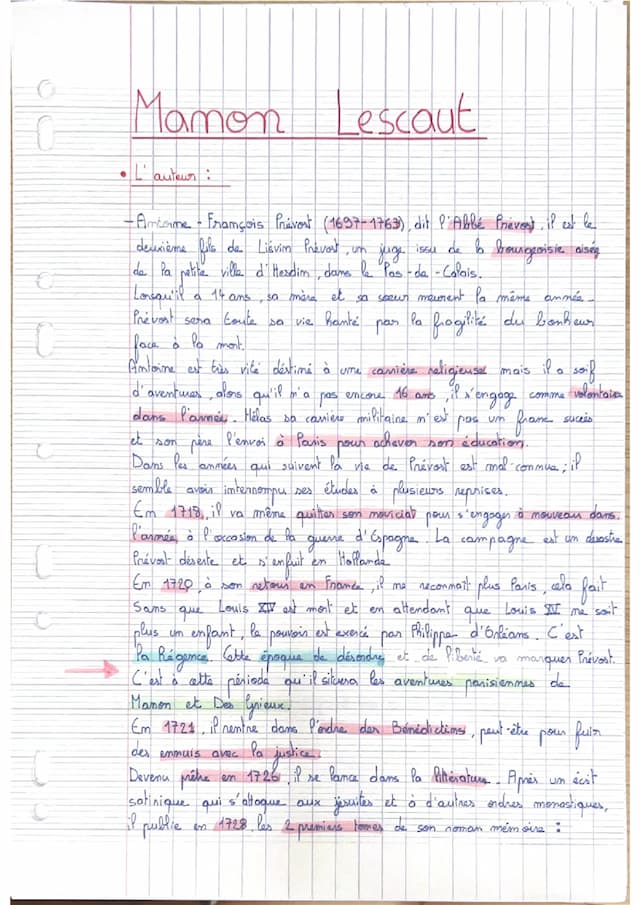 Manon Lescaut
• L'auteur :
- Antoine - François Prévost (1697-1763), dit l'Abbé Prévost, il est le
deuxième fils de Liévin Prévost, un juge issu de la bourgeoisie aisée
de la petite ville d'Hesdin, dans le Pas-de-Calais.
Lorsqu'il a 14 ans, sa mère et sa soeur meurent la même année.
Prévost sera toute sa vie hanté par la fragilité du bonheur
face à la mort.
Antoine est très vite déstiné à une carrière religieuse mais il a soif
d'aventures, alors qu'il n'a pas encore 16 ans, il s'engage comme volontaire
dans l'armée. Hélas sa carrière militaire n'est pas un franc succès
et son père l'envoi à Paris pour achever son éducation.
Dans les années qui suivent la vie de Prévost est mal connue, il
semble avoir interrompu ses études à plusieurs reprises.
En 1718, il va même quitter son noviciat pour s'engager à nouveau dans
l'armée, à l'occasion de la guerre d'Espagne. La campagne est un désastre
Prévost déserte et s'enfuit en Hollande.
En 1720, à son retour en France, il ne reconnaît plus Paris, cela fait
Sans que Louis XIV est mort et en attendant que Louis XV ne soit
plus un enfant, le pouvoir est exercé par Philippe d'Orléans. C'est
la Régence. Cette époque de désordre et de liberté va marquer Prévost.
C'est à cette période qu'il situera les aventures parisiennes de
Manon et Des Grieux.
En 1721, il rentre dans l'ordre des Bénédictins, peut-être pour fuir
des ennuis avec la justice.
Devenu prêtre en 1726, il se lance dans la littérature. Après un écrit
satirique qui s'attaque aux jésuites et à d'autres ordres monastiques,
il publie en 1728, les 2 premiers tomes de son roman mémoire :